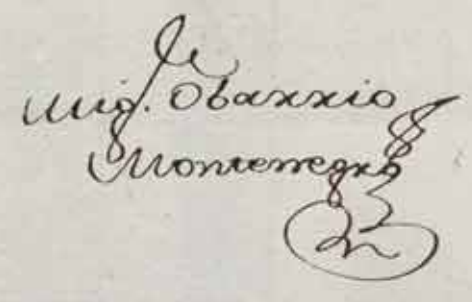 Mig. Obarrio
Montenegro